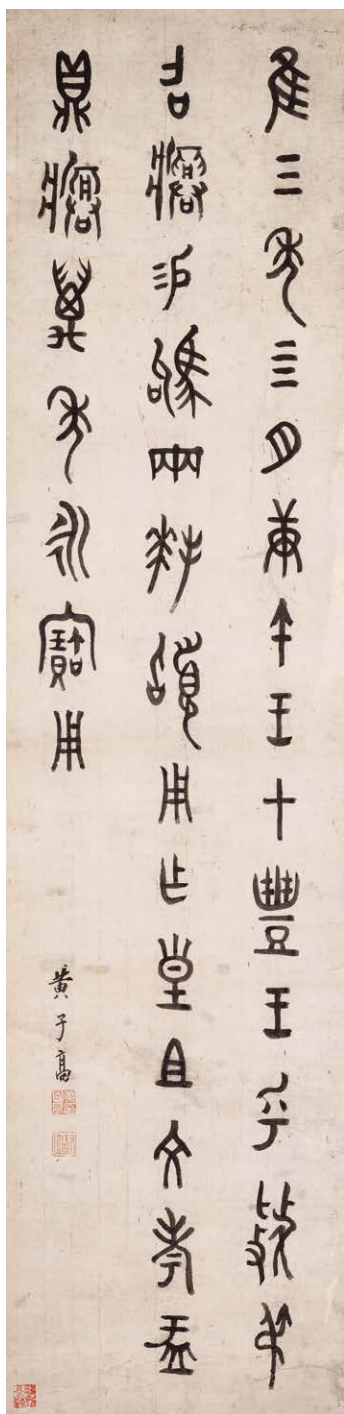 隹三年亖月庚午王才豐王乎虢弔
召𤼈易駒兩拜𩒨用乍皇且文考盂
鼎𤼈萬年永寶用
黃子高